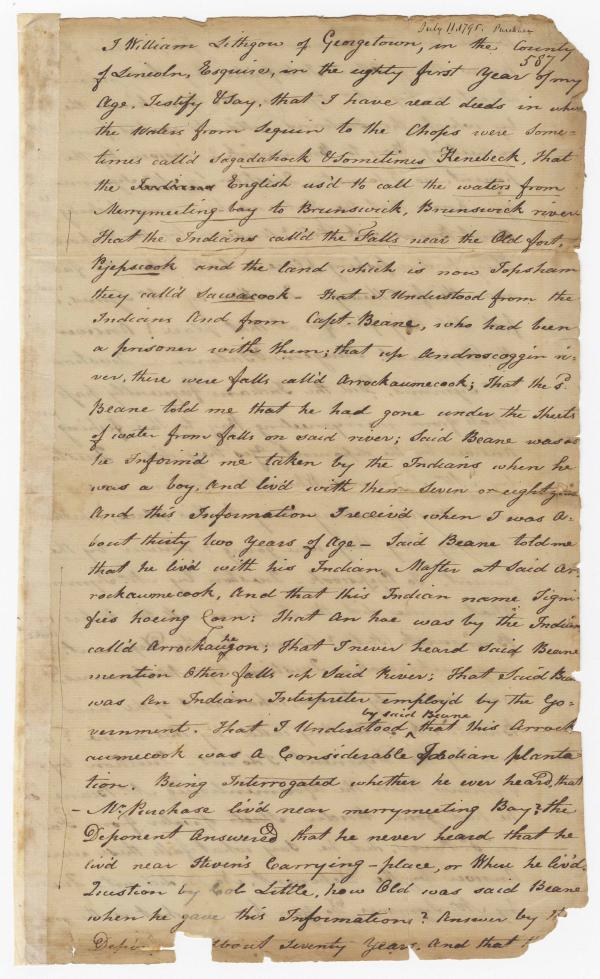 July 11. 1795. Purchase
587
I William Lithgow of Georgetown, in the County
of Lincoln, Esquire, in the eighty first Year of my
Age. Testify & Say, that I have read deeds in which
the Waters from Seguin to the Chops were some-
times call'd Sagadahock & Sometimes Kenebeck, That
the English us'd to call the waters from
Merrymeeting-bay to Brunswick, Brunswick river
That the Indians call'd the Falls near the Old fort,
Pejepscook and the land which is now Topsham
they call'd Sawacook - That I Understood from the
Indians And from Capt. Beane, who had been
a prisoner with them; that up Androscoggin ri-
ver, there were falls call'd Arrockaumecook; That the sd.
Beane told me that he had gone under the Sheets
of water from falls on said river; Said Beane was as
he Inform'd me taken by the Indians when he
was a boy, And liv'd with them Seven or eight years
And this Information I receiv'd when I was A-
bout thirty two Years of Age - Said Beane told me
that he liv'd with his Indian Master at Said Ar-
rockaumecook, And that this Indian name Signi-
fies hoeing Corn: That An hoe was by the Indians
call'd ; That I never heard Said Beane
mention Other falls up Said River: That Said Beane
was An Indian Interpreter employ'd by the Go-
vernment. That I Understood by said Beane that this Arrock
aumecook was A Considerable Indian planta
tion. Being Interrogated whether he ever heard, that
- Mr. Purchase liv'd near merrymeeting Bay? the
Deponent Answered, that he never heard that he
liv'd near Steven's Carrying-place, or Where he liv'd.
Question by Colo Little, how Old was said Beane
when he gave this Informations? Answer by the
about Seventy Years, And that